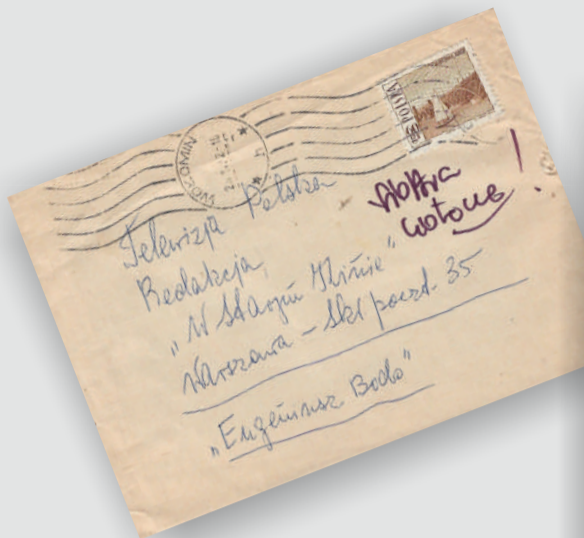 WOŁOMIN
POLSKA
Telewizja Polska
Redakcja
"W Starym Kinie"
Warszawa – Skr poczt. 35
"Eugeniusz Bodo"